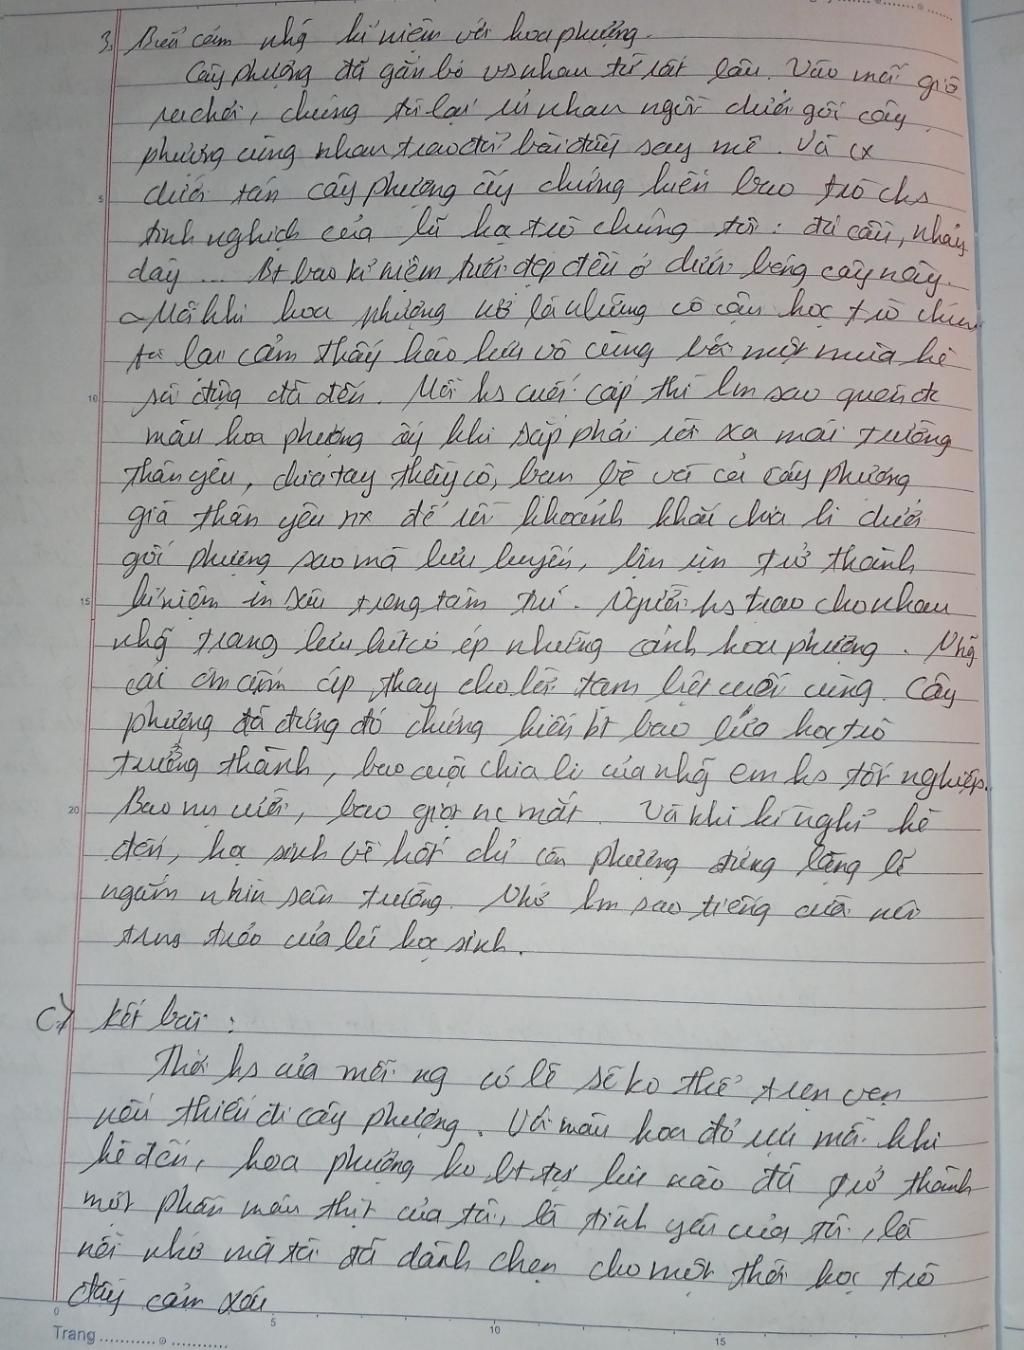 3. Biểu cảm nhg̃ kỉ niệm với hoa phượng.
Cây phượng đã gắn bó vs nhau từ rất lâu. Vào mỗi giờ
ra chơi, chúng tôi lại ủ nhau ngồi dưới gốc cây
phượng cùng nhau trao đổi bài đầy say mê. Và cx
dưới tán cây phượng ấy chứng kiến bao trò chs
tinh nghịch của lũ học trò chúng tôi: đá cầu, nhảy
dây ... Bt bao kỉ niệm tươi đẹp đều ở dưới bóng cây này.
Mỗi khi hoa phượng nở là những cô cậu học trò chúng
tôi lại cảm thấy háo hức vô cùng bởi một mùa hè
sôi động đã đến. Mỗi hs cuối cấp thì lm sao quên đc
màu hoa phượng ấy khi sắp phải rời xa mái trường
thân yêu, chia tay thầy cô, bạn bè và cả cây phượng
già thân yêu nx để rồi khoảnh khắc chia li dưới
gốc phượng sao mà lưu luyến, bịn rịn trở thành
kỉ niệm in sâu trong tâm trí. Người hs trao cho nhau
nhg̃ trang lưu bút có ép những cánh hoa phượng. Nhg̃
cái ôm ấm áp thay cho lời tạm biệt cuối cùng. Cây
phượng đã đứng đó chứng kiến bt bao lứa học trò
trưởng thành, bao cuộc chia li của nhg̃ em hs tốt nghiệp.
Bao nụ cười, bao giọt nc mắt. Và khi kì nghỉ hè
đến, học sinh về hết chỉ còn phượng đứng lặng lẽ
ngắm nhìn sân trường. Nhớ lm sao tiếng cười nói
trong trẻo của lũ học sinh.
C) Kết bài:
Thời hs của mỗi ng có lẽ sẽ ko thể trọn vẹn
nếu thiếu đi cây phượng. Với màu hoa đỏ rực mỗi khi
hè đến, hoa phượng ko bt tự lúc nào đã trở thành
một phần máu thịt của tôi, là tình yêu của tôi, là
nỗi nhớ mà tôi đã dành chọn cho một thời học trò
đầy cảm xúc
Trang